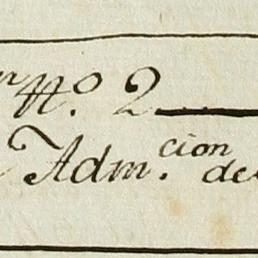 Nº. 2
Adm.cion de